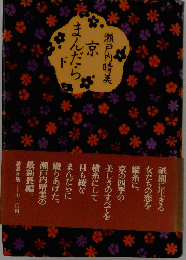 瀬戸内晴美
京
まんだら
下
祇園に生きる
女たちの恋を
縦糸に、
京の四季の
美しさのすべてを
横糸にして
目も綾な
まんだらに
織りあげた、
瀬戸内晴美の
最新長編